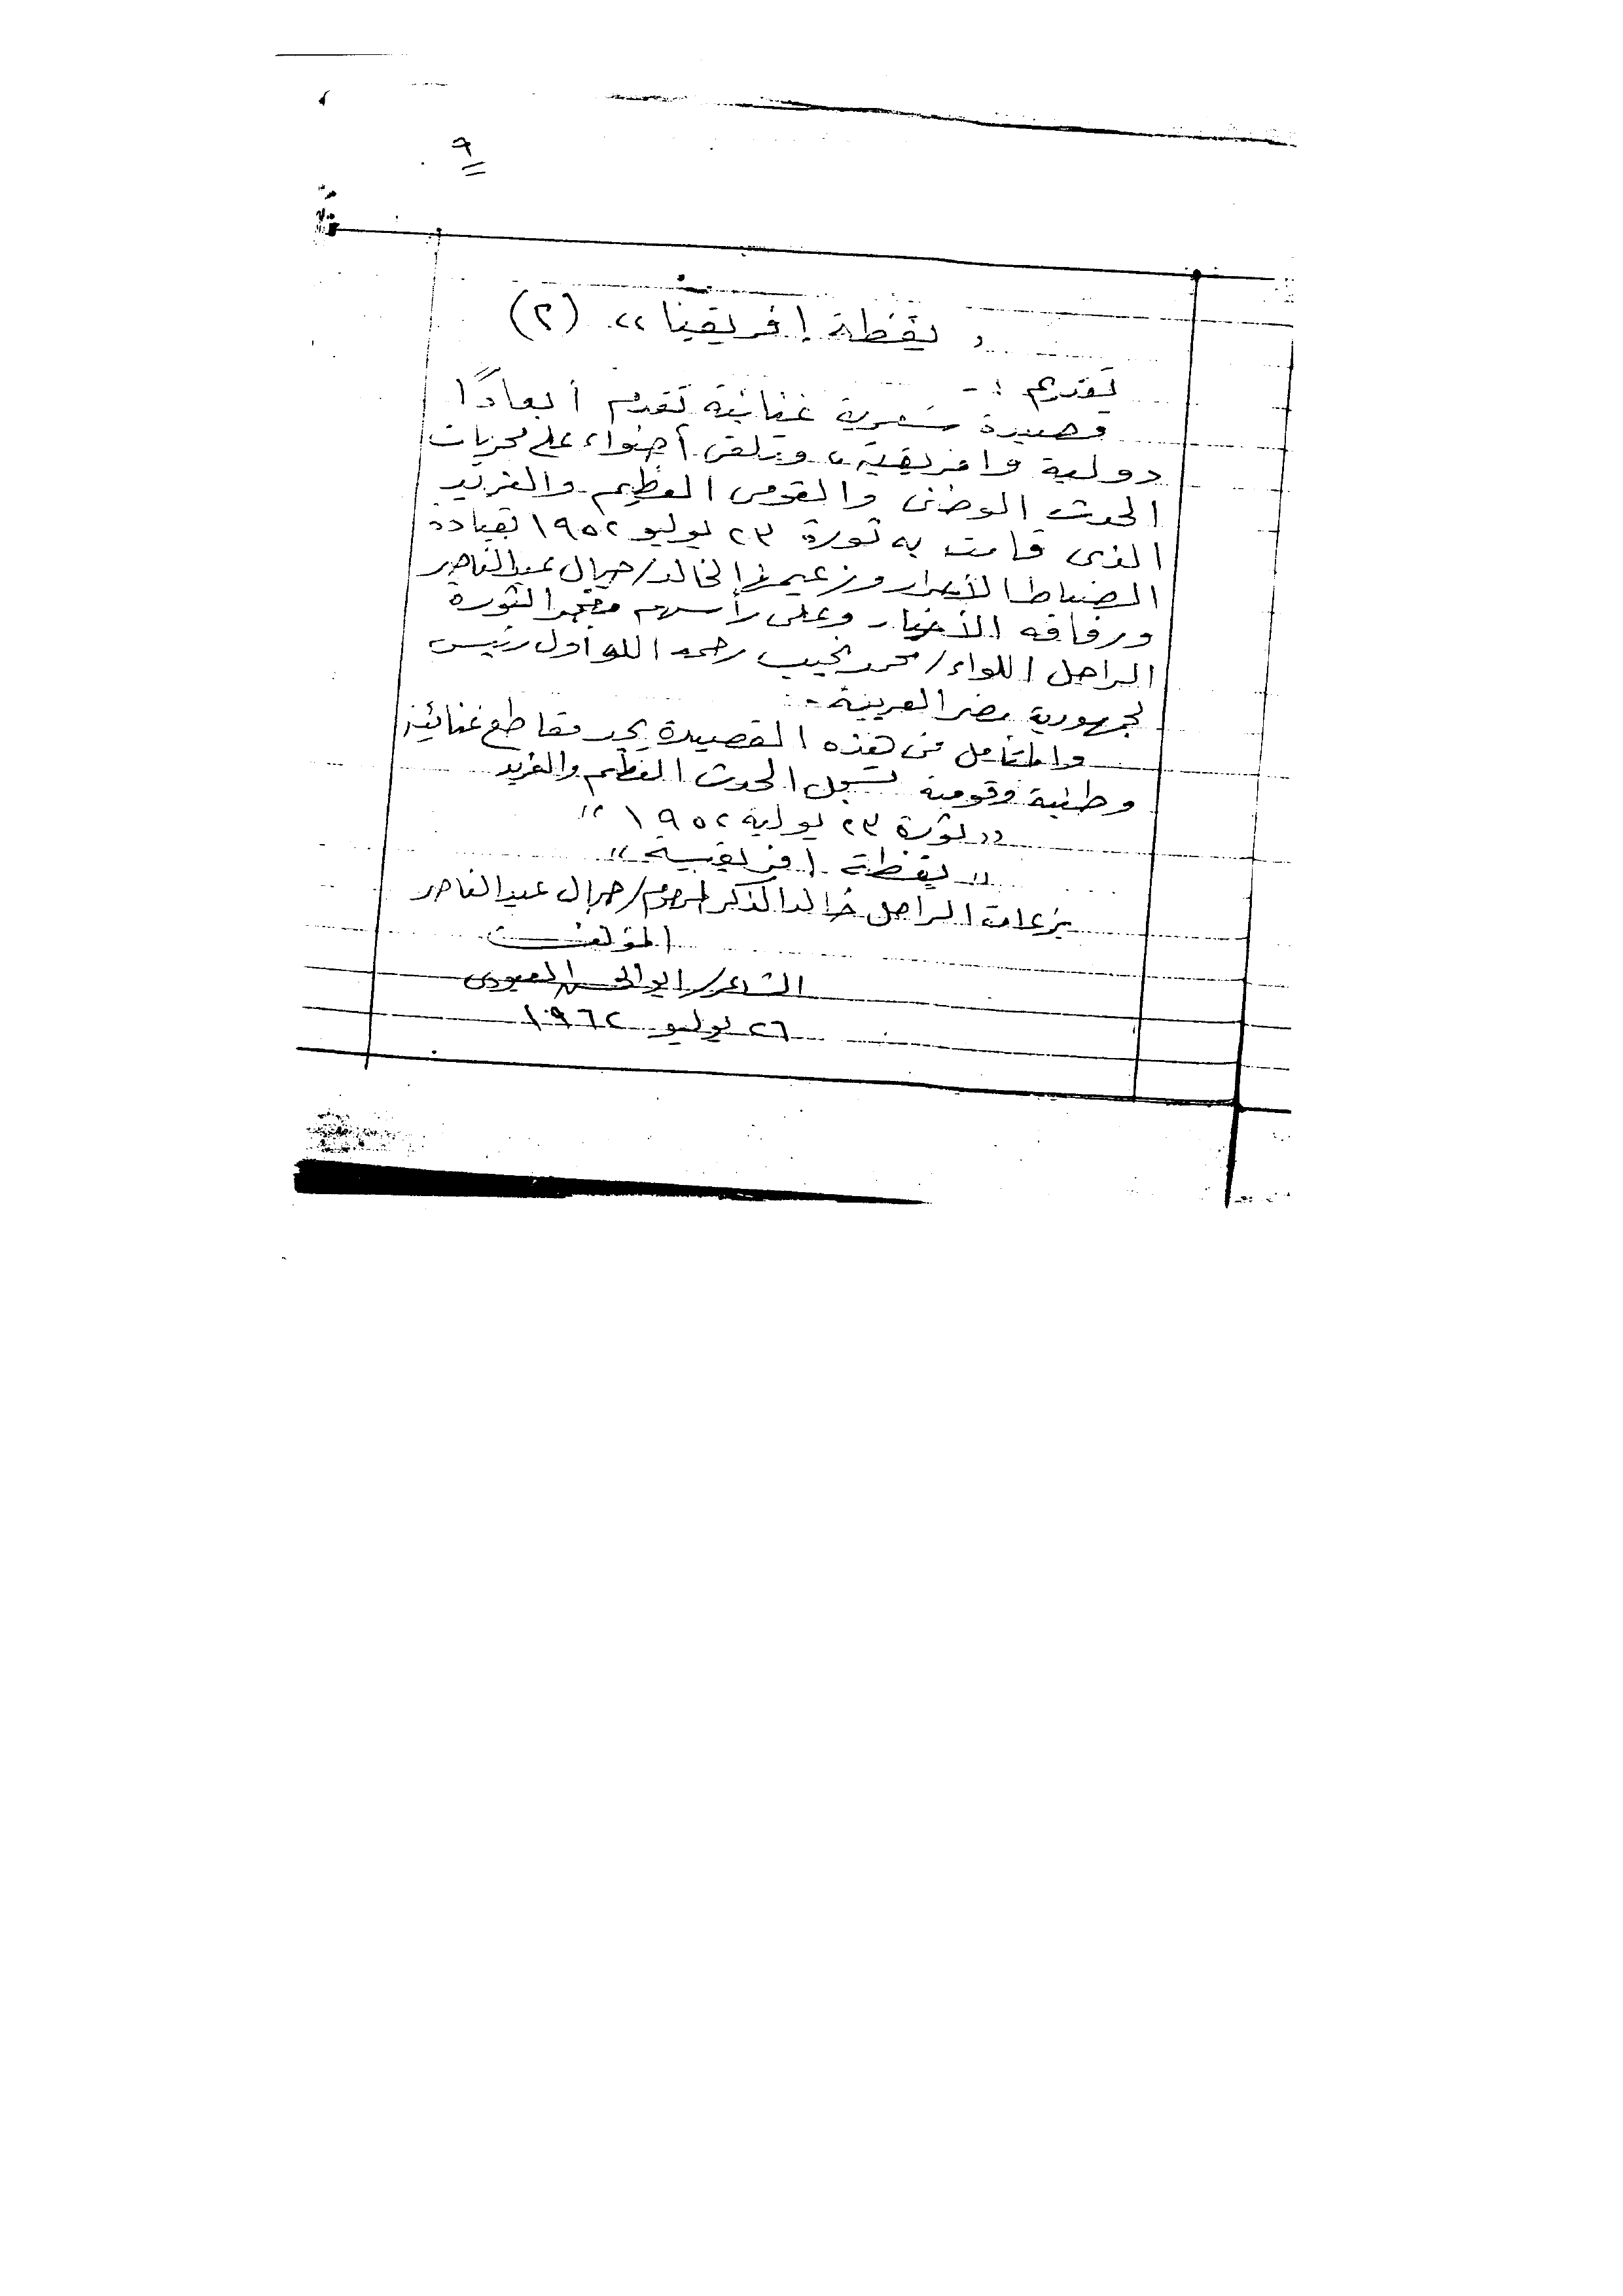 ٩
„ يقظة إفريقيا “ (٢)
تقديم :-
قصيدة شعرية غنائية تقدم أبعادًا
دولية وافريقية، وتلقى أضواء على مجريات
الحدث الوطنى والقومى العظيم والفريد
الذى قامت به ثورة ٢٣ يوليو ١٩٥٢ بقيادة
الضباط الأحرار وزعيمها الخالد/ جمال عبد الناصر
ورفاقه الأخيار وعلى رأسهم مفجر الثورة
الراحل اللواء/ محمد نجيب رحمه الله أول رئيس
لجمهورية مصر العربية -:
والمتأمل فى هذه القصيدة يجد مقاطع غنائية
وطنية وقومية تسجل الحدث العظيم والفريد
"ثورة ٢٣ يولية ١٩٥٢"
"يقظة افريقية"
بزعامة الراحل خالد الذكر المرحوم/ جمال عبد الناصر
المؤلف
الشاعر/ ابو الحسن
٢٦ يوليو ١٩٦٢